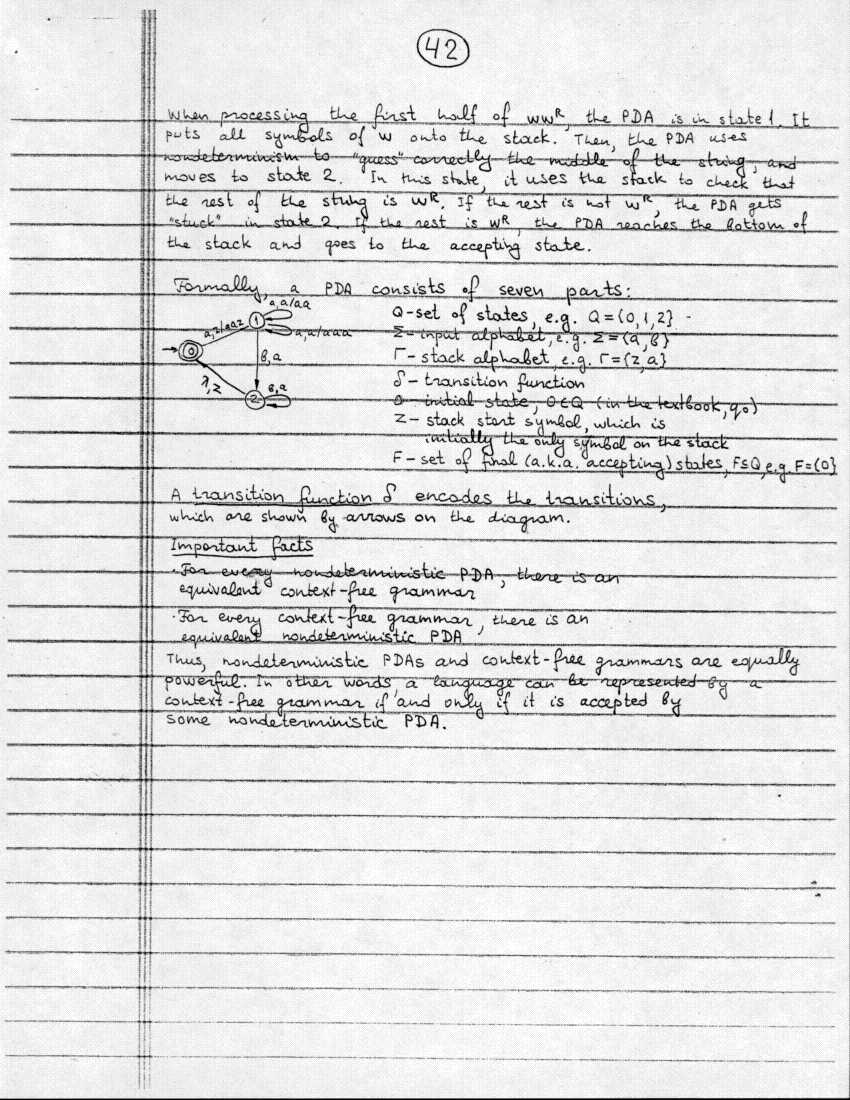 42
When processing the first half of ww^R, the PDA is in state 1. It
puts all symbols of w onto the stack. Then, the PDA uses
nondeterminism to "guess" correctly the middle of the string, and
moves to state 2. In this state, it uses the stack to check that
the rest of the string is w^R. If the rest is not w^R, the PDA gets
"stuck" in state 2. If the rest is w^R, the PDA reaches the bottom of
the stack and goes to the accepting state.
Formally, a PDA consists of seven parts:
a,a/aa
1
a,z/aaz
a,a/aaa
0
b,a
λ,z
b,a
2
Q-set of states, e.g. Q={0,1,2}
Σ-input alphabet, e.g. Σ={a,b}
Γ-stack alphabet, e.g. Γ={z,a}
δ-transition function
0-initial state, 0∈Q (in the textbook, q₀)
z-stack start symbol, which is
initially the only symbol on the stack
F-set of final (a.k.a. accepting) states, F⊆Q, e.g. F={0}
A transition function δ encodes the transitions,
which are shown by arrows on the diagram.
Important facts
·For every nondeterministic PDA, there is an
equivalent context-free grammar
·For every context-free grammar, there is an
equivalent nondeterministic PDA
Thus, nondeterministic PDAs and context-free grammars are equally
powerful. In other words, a language can be represented by a
context-free grammar if and only if it is accepted by
some nondeterministic PDA.